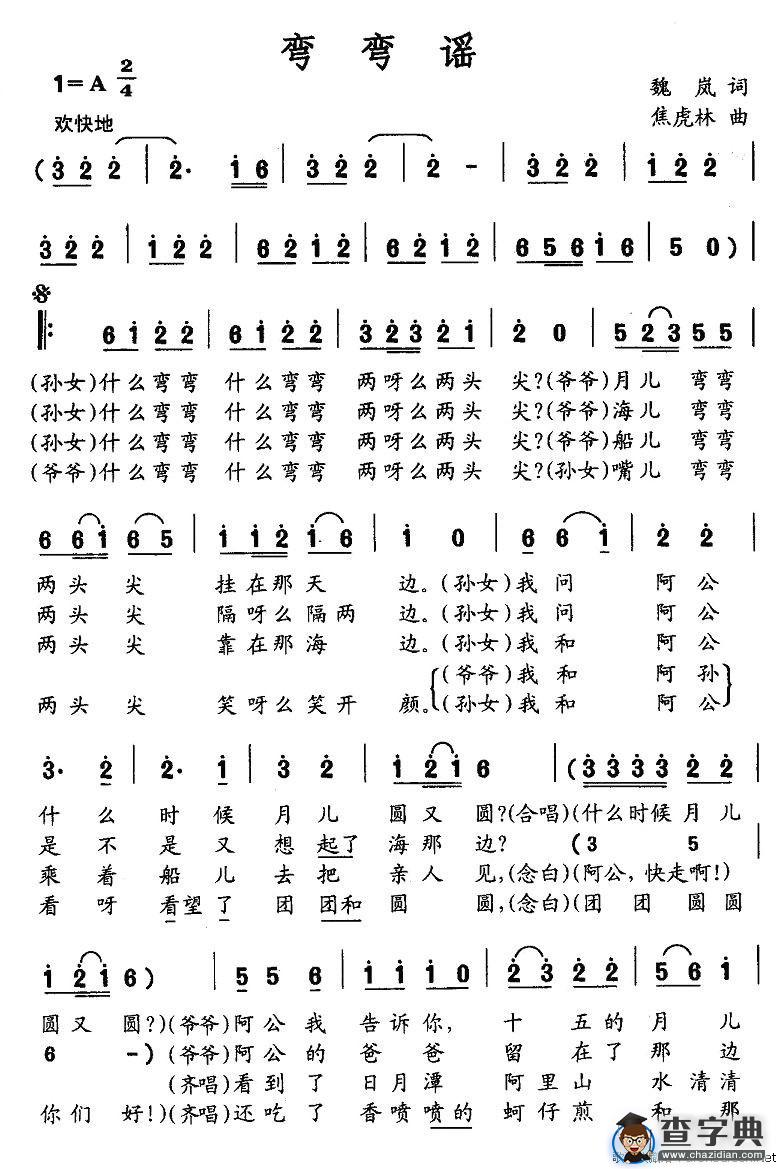 弯弯谣
1=A 2/4
魏岚 词
欢快地
焦虎林 曲
(3 2 2 | 2· 1 6 | 3 2 2 | 2 - | 3 2 2 | 1 2 2 |
3 2 2 | 1 2 2 | 6 2 1 2 | 6 2 1 2 | 6 5 6 1 6 | 5 0)
‖: 6 1 2 2 | 6 1 2 2 | 3 2 3 2 1 | 2 0 | 5 2 3 5 5 |
(孙女)什么弯弯 什么弯弯 两呀么两头 尖?(爷爷)月儿 弯弯
(孙女)什么弯弯 什么弯弯 两呀么两头 尖?(爷爷)海儿 弯弯
(孙女)什么弯弯 什么弯弯 两呀么两头 尖?(爷爷)船儿 弯弯
(爷爷)什么弯弯 什么弯弯 两呀么两头 尖?(孙女)嘴儿 弯弯
6 6 1 6 5 | 1 1 2 1 6 | 1 0 | 6 6 1 | 2 2 |
两头尖 挂在那天 边。(孙女)我问 阿公
两头尖 隔呀么隔两 边。(孙女)我问 阿公
两头尖 靠在那海 边。(孙女)我和 阿公
(爷爷)我和 阿孙
两头尖 笑呀么笑开 颜。(孙女)我和 阿公
3· 2 | 2· 1 | 3 2 | 1 2 1 6 | (3 3 3 3 2 2 |
什么 时候 月儿 圆又 圆?(合唱)(什么时候月儿
是不 是又 想起了 海那 边? (3 5
乘着 船儿 去把 亲人 见,(念白)(阿公,快走啊!)
看呀 看望了 团团和 圆 圆,(念白)(团团圆圆
1 2 1 6) | 5 5 6 | 1 1 1 0 | 2 3 2 2 | 5 6 1 |
圆又 圆?)(爷爷)阿公我 告诉你, 十五的 月儿
6 -)(爷爷)阿公的 爸爸 留在了 那边
(齐唱)看到了 日月潭 阿里山 水清清
你们 好!)(齐唱)还吃了 香喷喷的 蚵仔煎 和那
查字典
www.chazidian.com